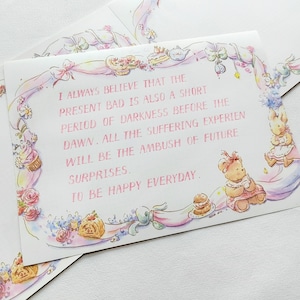 I ALWAYS BELIEVE THAT THE
PRESENT BAD IS ALSO A SHORT
PERIOD OF DARKNESS BEFORE THE
DAWN. ALL THE SUFFERING EXPERIEN
WILL BE THE AMBUSH OF FUTURE
SURPRISES.
TO BE HAPPY EVERYDAY.